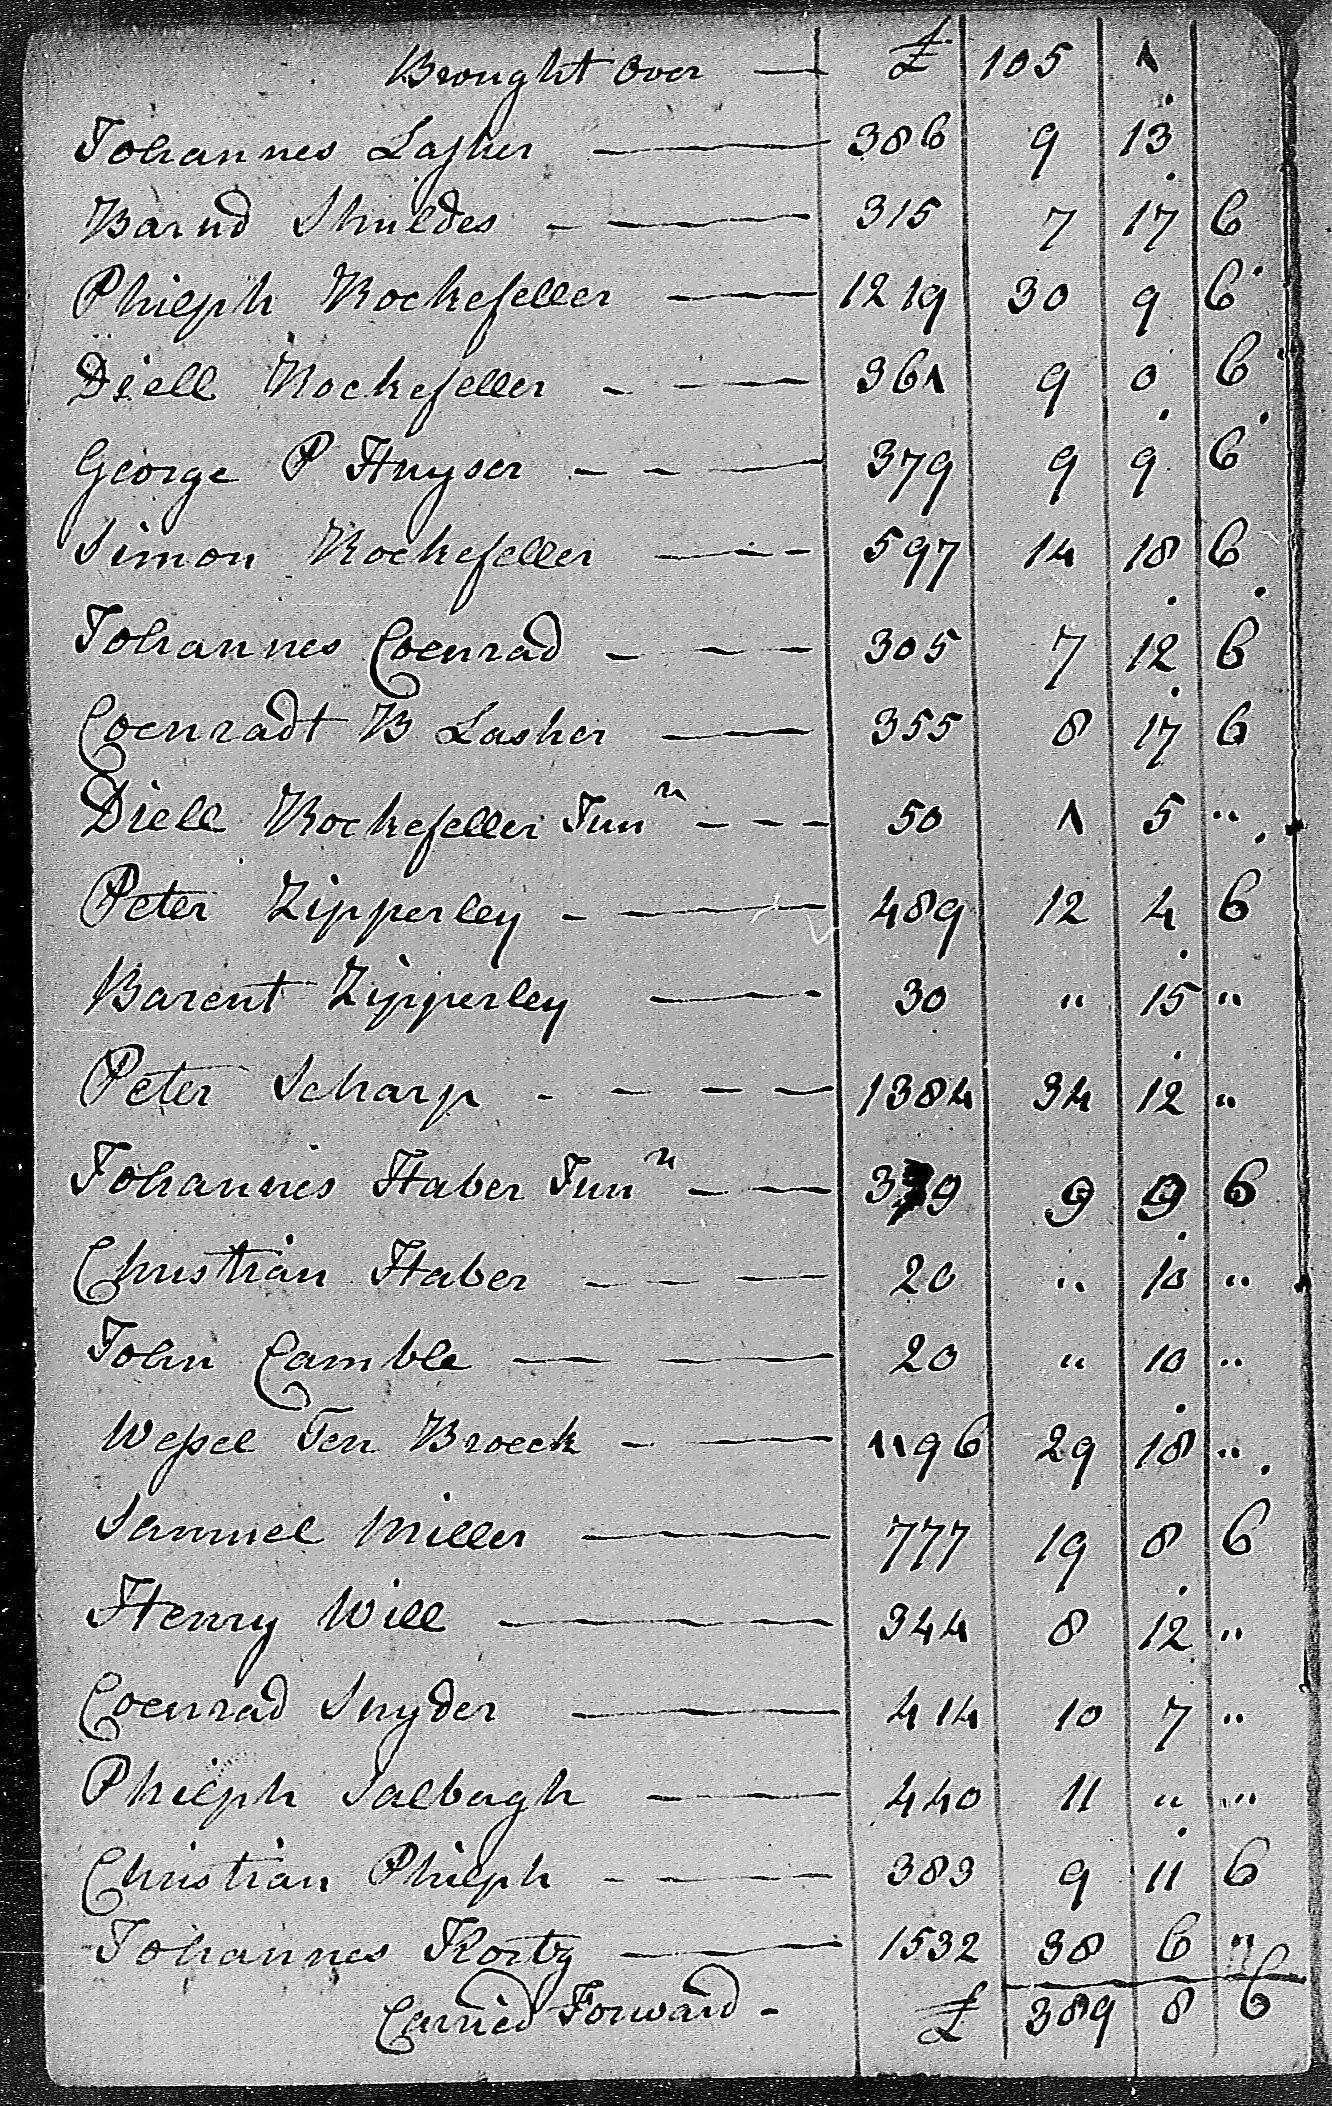 Brought Over — £ 105 1
Johannes Lasher — 386 9 13
Barnd Shuldes — 315 7 17 6
Philiph Rockefeller — 1219 30 9 6
Diell Rockefeller — 361 9 0 6
George P Huyser — 379 9 9 6
Simon Rockefeller — 597 14 18 6
Johannes Coenrad — 305 7 12 6
Coenradt B Lasher — 355 8 17 6
Diell Rockefeller Junr — 50 1 5 "
Peter Zipperley — 489 12 4 6
Barent Zipperley — 30 " 15 "
Peter Scharp — 1384 34 12 "
Johannes Haber Junr — 379 9 9 6
Christian Haber — 20 " 10 "
John Camble — 20 " 10 "
Wessel Ten Broeck — 1196 29 18 "
Samuel Miller — 777 19 8 6
Henry Will — 344 8 12 "
Coenrad Snyder — 414 10 7 "
Philiph Salbagh — 440 11 " "
Christian Philiph — 383 9 11 6
Johannes Kortz — 1532 38 6 "
Carried Forward - £ 389 8 6